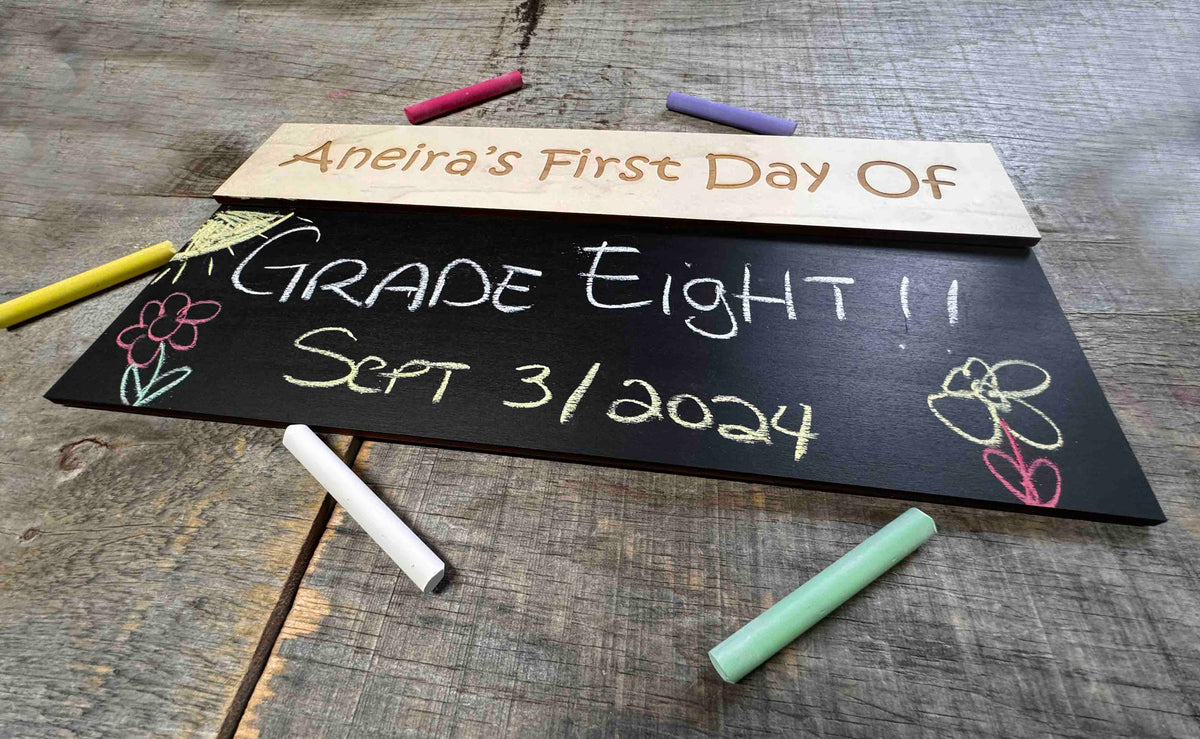 Aneira's First Day Of
GRADE EigHT !!
SEPT 3/2024